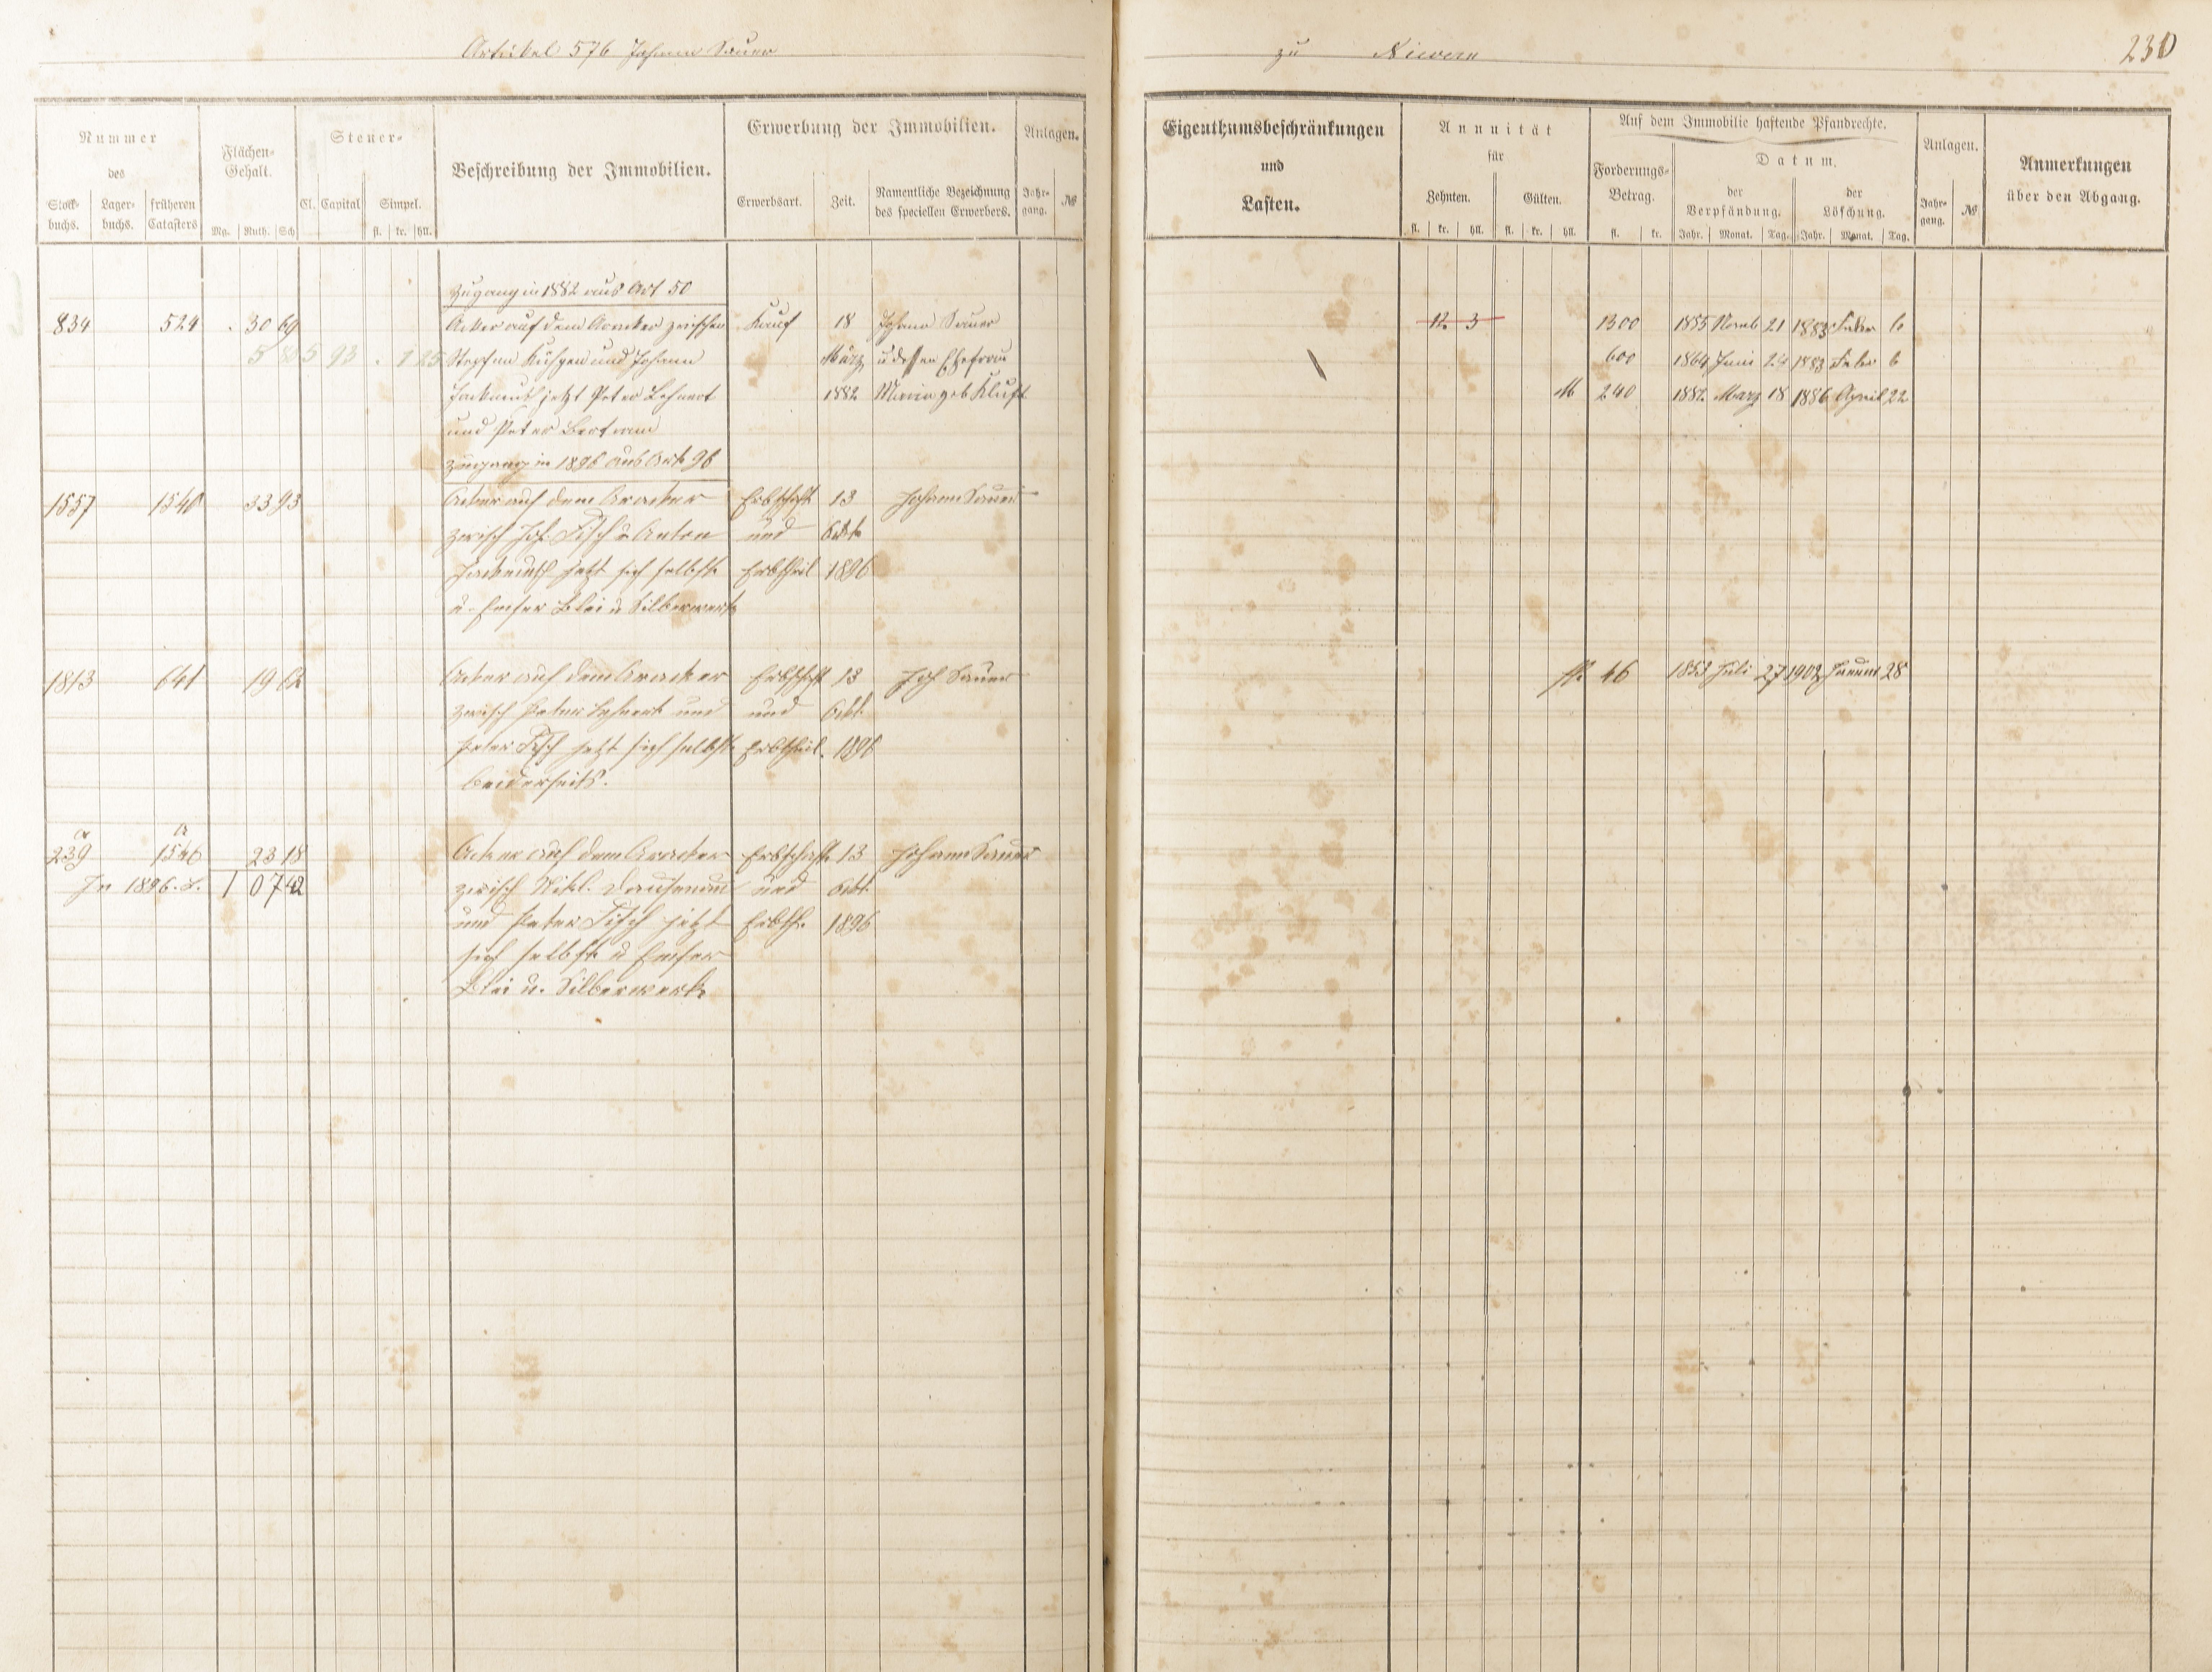 Artikel 576 Johann Sauer
zu Nievern
230
Nummer
des
Stock-
buchs.
Lager-
buchs.
früheren
Catasters
Flächen-
Gehalt.
Mg. Ruth. Sch
Steuer-
Cl. Capital Simpel.
fl. kr. hll.
Beschreibung der Immobilien.
Erwerbung der Immobilien.
Erwerbsart. Zeit.
Namentliche Bezeichnung
des speciellen Erwerbers.
Anlagen.
Jahr-
gang.
№
Eigenthumsbeschränkungen
und
Lasten.
Annuität
für
Zehnten. Gülten.
fl. kr. hll. fl. kr. hll.
Auf dem Immobilie haftende Pfandrechte.
Forderungs-
Betrag.
fl. kr.
Datum.
der
Verpfändung.
der
Löschung.
Jahr. Monat. Tag. Jahr. Monat. Tag.
Anlagen.
Jahr-
gang.
№
Anmerkungen
über den Abgang.
Zugang in 1882 aus Art 50
834 524 30 69 Acker auf dem zwischen Kauf 18 Johann Sauer 12 3 1300 1855 Novb 21 1883 Febr 6
5 93 . 1 25 Stephan und Johann März u dessen Ehefrau 600 1864 Juni 24 1883 Febr 6
jetzt Peter Lehnert 1882 Maria geb Kluft M 240 1882 März 18 1886 April 22
und Peter Bertram
Zugang in 1896 aus Art 96
1557 1548 33 93 Acker auf dem Erbschaft 13 Johann Sauer
zwisch Joh. Fisch u Anton und Ockt
jetzt sich selbst Erbtheil 1896
u. Emser Blei u Silberwerk
1813 641 19 62 Acker auf dem Erbschaft 13 Joh Sauer 46 1853 Juli 27 1902 Januar 28
zwisch Peter Lehnert und und Ockt.
Peter Fisch jetzt sich selbst Erbtheil. 1896
beiderseits.
a a
239 1546 23 18 Acker auf dem Erbschaft 13 Johann Sauer
In 1896. 1 07 42 zwisch Nikl. und Ockt.
und Peter Fisch jetzt Erbth. 1896
sich selbst u Emser
Blei u. Silberwerk